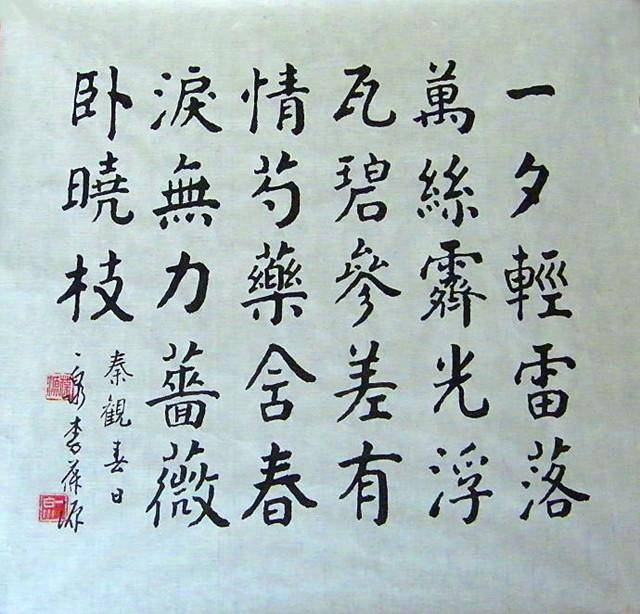 一夕輕雷落
萬絲霽光浮
瓦碧參差有
情芍藥含春
淚無力薔薇
卧曉枝
秦觀春日
李